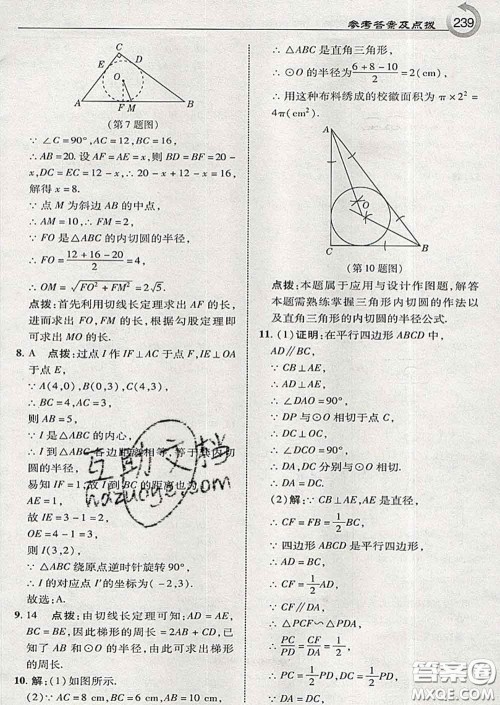 参考答案及点拨 239
C
E D
O
A F M B
(第7题图)
∵ ∠C=90°,AC=12,BC=16,
∴ AB=20. 设 AF=AE=x,则 BD=BF=
20-x,EC=DC=12-x,∴ 20-x+12-x=16,
解得 x=8.
∵ 点 M 为斜边 AB 的中点,
∴ AM=10,∴ FM=2,
∵ FO 是△ABC 的内切圆的半径,
∴ FO=(12+16-20)/2=4,
∴ OM=√(FO²+FM²)=2√5.
点拨:首先利用切线长定理求出 AF 的长,
进而求出 FO,FM 的长,根据勾股定理即可
求出 MO 的长.
8. A 点拨:过点 I 作 IF⊥AC 于点 F,IE⊥OA
于点 E.
∵ A(4,0),B(0,3),C(4,3),
∴ BC=4,AC=3,
则 AB=5,
∵ I 是△ABC 的内心,
∴ I 到△ABC 各边距离相等,等于其内切
圆的半径,
易知 IF=1. 故 I 到 BC 的距离也为 1.
AE=1,
故 IE=3-1=2,
OE=4-1=3,
则 I(3,2),
∵ △ABC 绕原点逆时针旋转 90°,
∴ I 的对应点 I′的坐标为(-2,3).
故选:A.
9. 14 点拨:由切线长定理可知:AD=AE,
BC=BE,因此梯形的周长=2AB+CD,已
知了 AB 和⊙O 的半径,由此可求出梯形
的周长.
10. 解:(1)如图所示.
(2)∵ AC=8 cm,BC=6 cm,AB=10 cm,
∴ △ABC 是直角三角形,
∴ ⊙O 的半径为(6+8-10)/2=2(cm),
∴ 用这种布料绣成的校徽面积为 π×2²=
4π(cm²).
A
O
C B
(第10题图)
点拨:本题属于应用与设计作图题,解答
本题需熟练掌握三角形内切圆的作法以
及直角三角形的内切圆的半径公式.
11. (1)证明:在平行四边形 ABCD 中,
AD∥BC,
∵ CB⊥AE,
∴ AD⊥AE,
∴ ∠DAO=90°,
∵ DP 与⊙O 相切于点 C,
∴ DC⊥OC,
∴ ∠DCO=90°,
∴ DA、DC 分别与⊙O 相切.
(2)解:∵ CB⊥AE,AE 是直径,
∴ CF=FB=1/2 BC,
∵ 四边形 ABCD 是平行四边形,
∴ DA=CB,
∴ CF=1/2 DA,
∵ CF∥DA,
∴ △PCF∽△PDA,
∴ PC/PD=CF/DA=1/2,
∴ PC=1/2 PD,DC=1/2 PD,
∵ DA=DC,∴ DA=1/2 PD,
互助文档
hxzuoye.com
答案圈
MXQE.COM